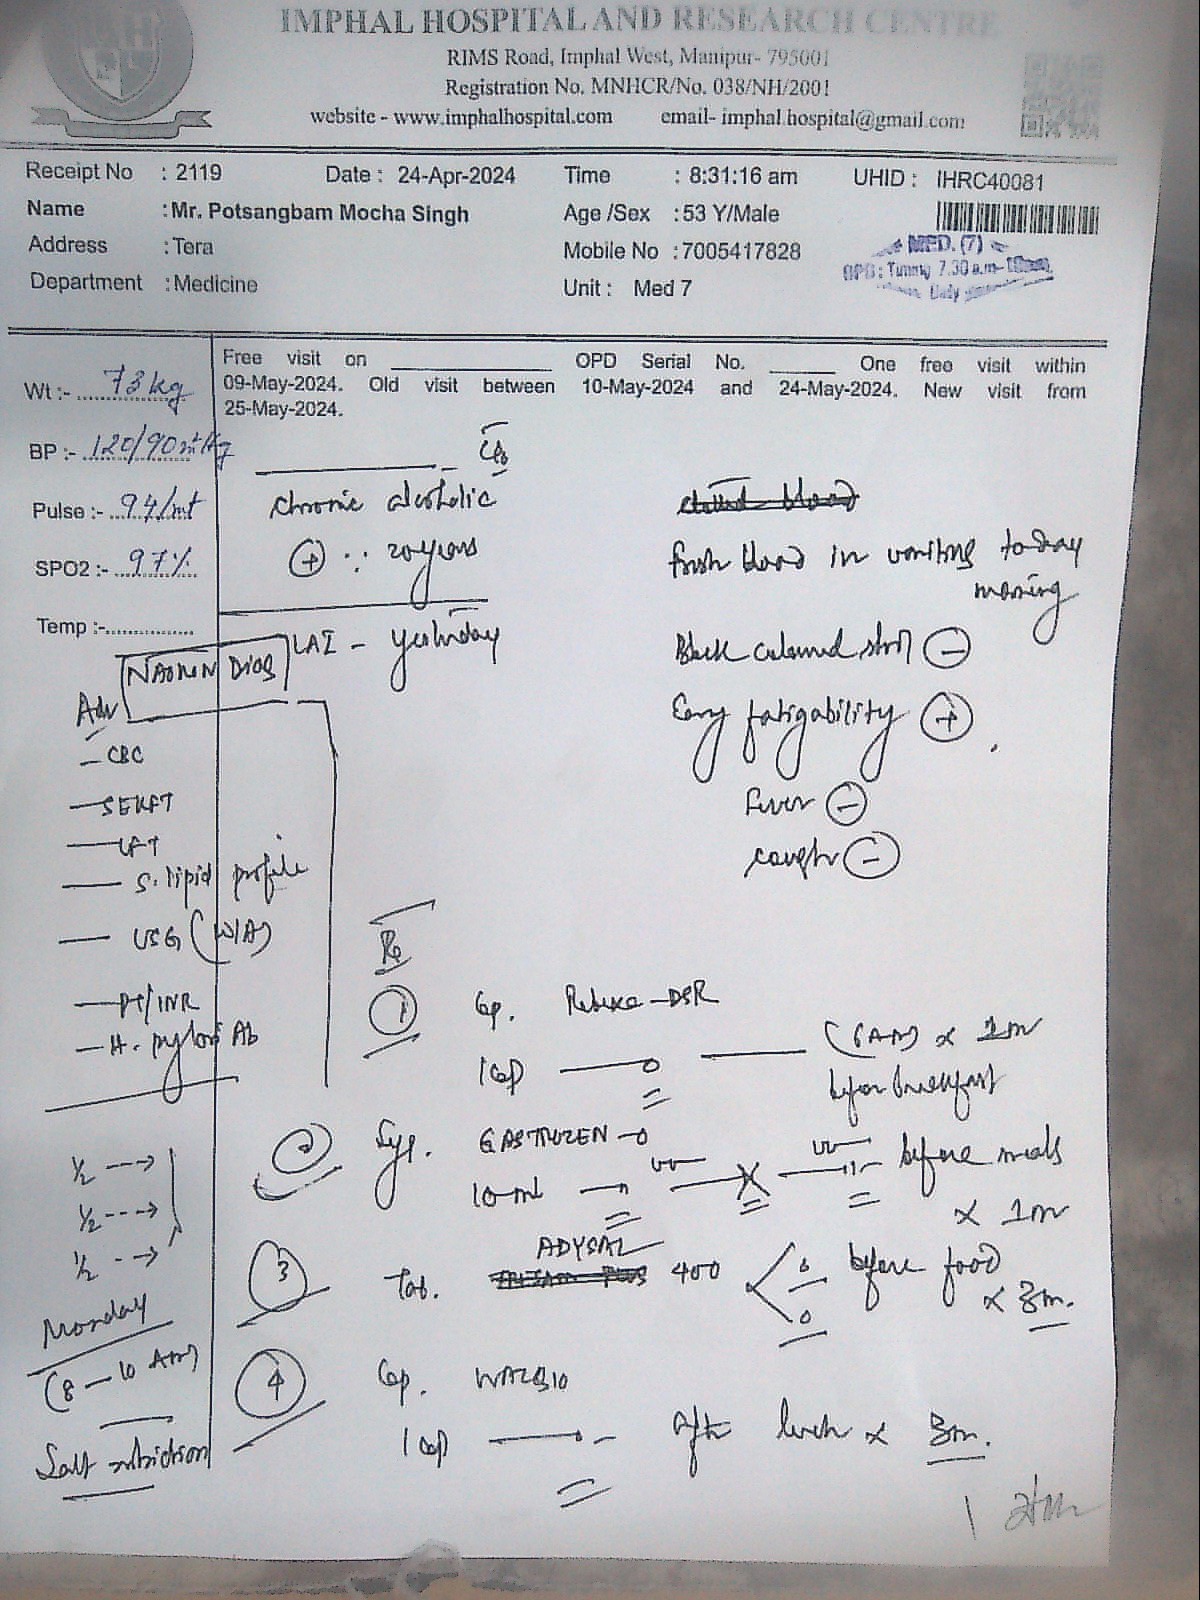 IMPHAL HOSPITAL AND RESEARCH CENTRE
RIMS Road, Imphal West, Manipur- 795001
Registration No. MNHCR/No. 038/NH/2001
website - www.imphalhospital.com email- imphal.hospital@gmail.com
Receipt No : 2119 Date : 24-Apr-2024 Time : 8:31:16 am UHID : IHRC40081
Name : Mr. Potsangbam Mocha Singh Age /Sex : 53 Y/Male
Address : Tera Mobile No : 7005417828
Department : Medicine Unit : Med 7
MED. (7)
OPD : Timing 7.30 a.m-
Daily
Free visit on ________ OPD Serial No. ____ One free visit within
09-May-2024. Old visit between 10-May-2024 and 24-May-2024. New visit from
25-May-2024.
Wt :- 73 kg
BP :- 120/90
Pulse :- 94/mt
SPO2 :- 97%
Temp :-
chronic alcoholic
+ ∵ 20 years
LAI - yesterday
clotted blood
fresh blood in vomiting today
morning
Black coloured stool -
Easy fatigability +
fever -
cough -
Adv
- CBC
- LFT
- S. lipid profile
- USG (W/A)
- PT/INR
- H. pylori Ab
1/2 --->
1/2 --->
1/2 --->
Monday
(8 - 10 AM)
Salt restriction
Rx
1 Cap. DSR
1 cap (6 AM) x 1m
before breakfast
2 Syp.
10 ml before meals
x 1m
3 Tab. 400 before food
x 3m.
4 Cap.
1 cap after lunch x 3m.